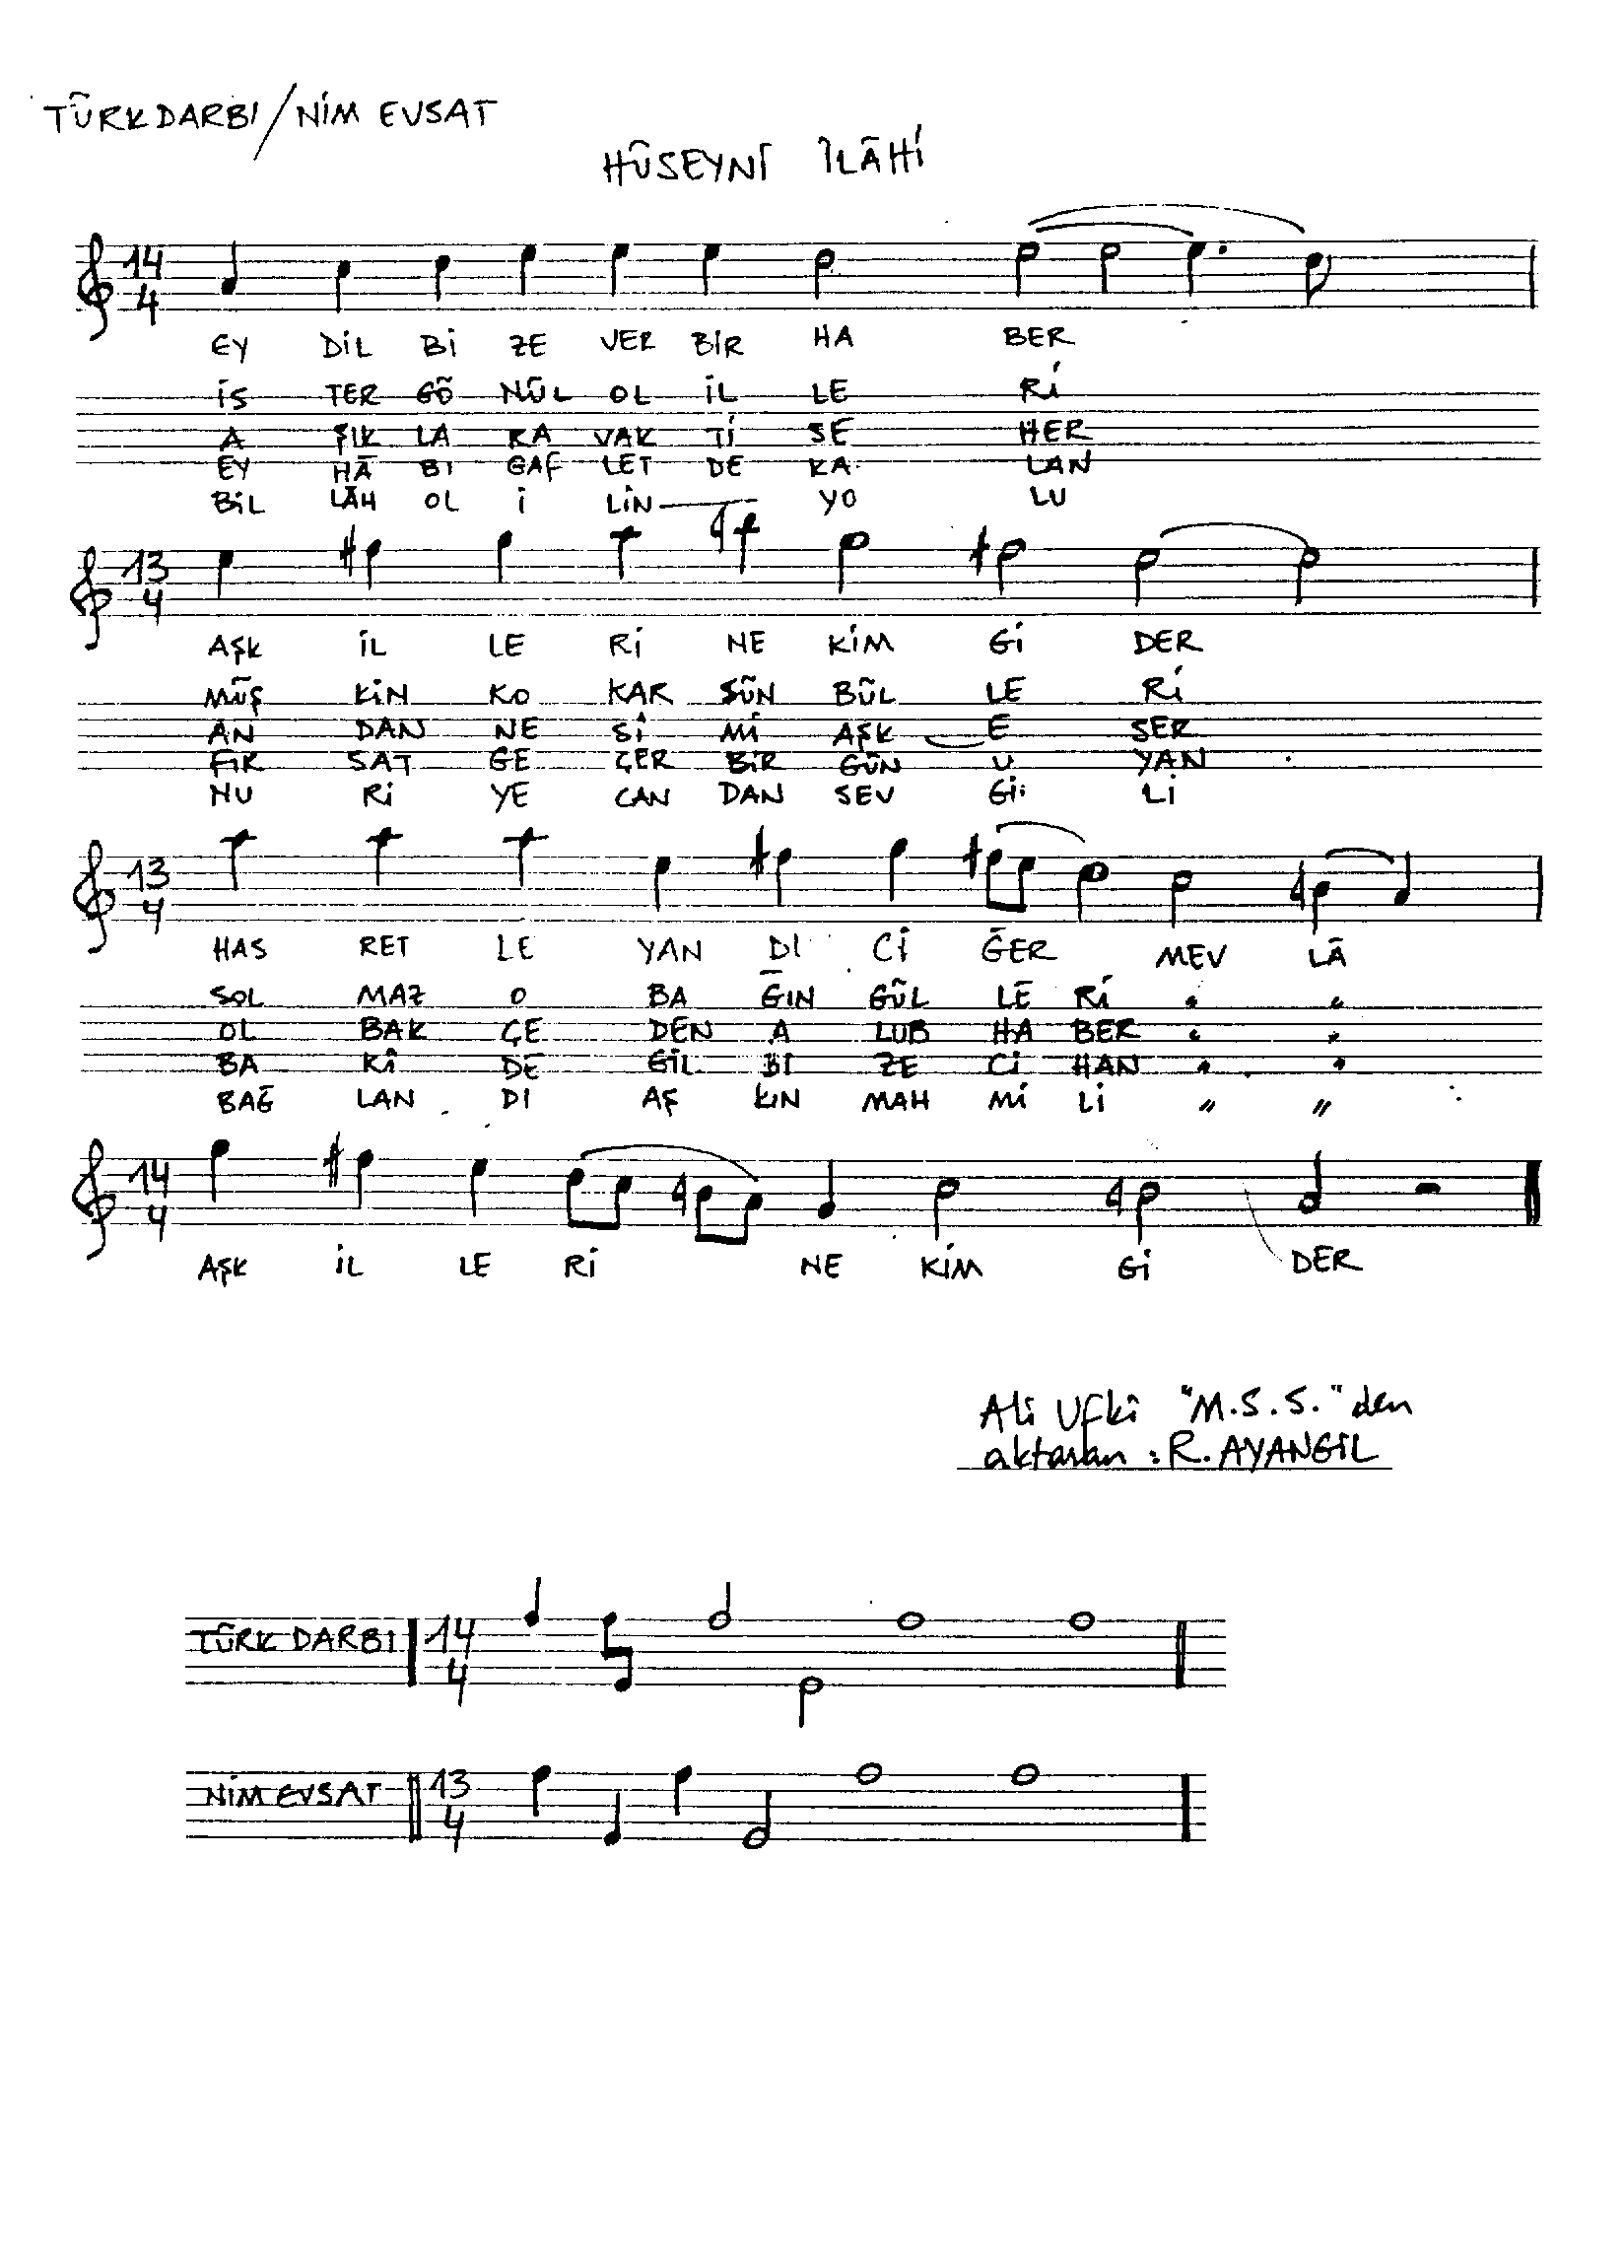 TÜRKDARBI/NİM EVSAT
HÜSEYNİ İLÂHİ
14
4
EY DİL Bİ ZE VER BİR HA BER
İS TER GÖ NÜL OL İL LE Rİ
A ŞIK LA RA VAK Tİ SE HER
EY HÂ BI GAF LET DE KA LAN
BİL LÂH OL İ LİN YO LU
13
4
AŞK İL LE Rİ NE KİM Gİ DER
MÜŞ KİN KO KAR SÜN BÜL LE Rİ
AN DAN NE Sİ Mİ AŞK E SER
FIR SAT GE ÇER BİR GÜN U YAN
NU Rİ YE CAN DAN SEV Gİ Lİ
13
4
HAS RET LE YAN DI Cİ ĞER MEV LÂ
SOL MAZ O BA ĞIN GÜL LE Rİ " "
OL BAK ÇE DEN A LUB HA BER " "
BA KÎ DE GİL BI ZE Cİ HAN " "
BAĞ LAN DI AŞ KIN MAH Mİ Lİ " "
14
4
AŞK İL LE Rİ NE KİM Gİ DER
Ali Ufkî "M.S.S."den
aktaran : R. AYANGİL
TÜRK DARBI 14
4
NİM EVSAT 13
4